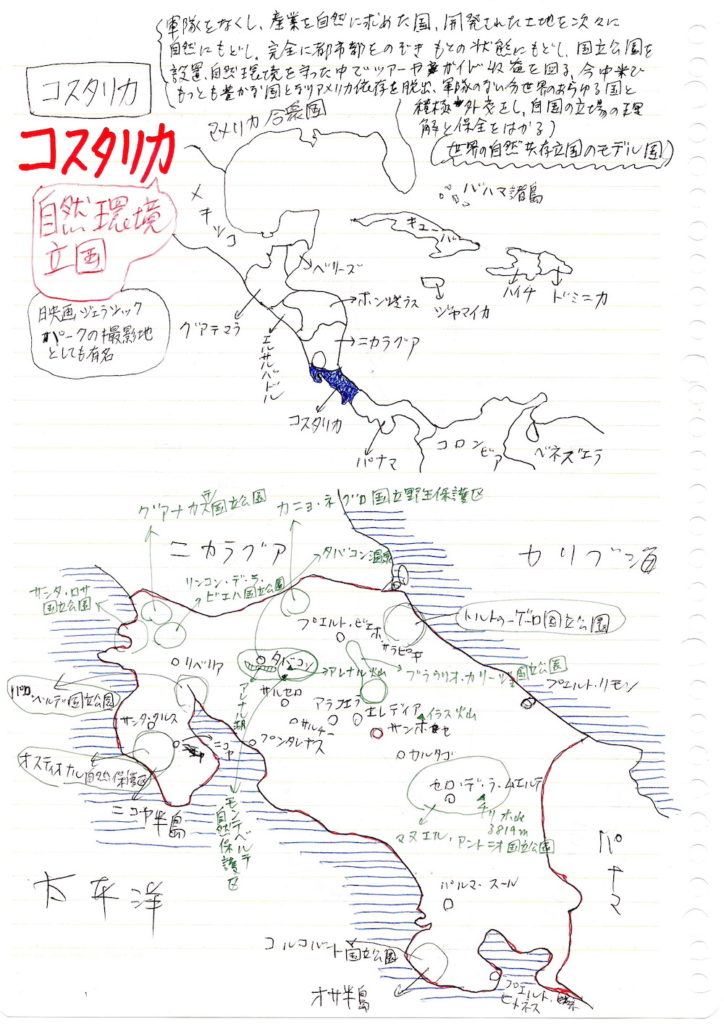 軍隊をなくし、産業を自然に求めた国、開発された土地を次々に
自然にもどし、完全に都市部をのぞきもとの状態にもどし、国立公園を
設置、自然環境を守った中でツアーやガイド収益を図る、今中米で
もっとも豊かな国となりアメリカ依存を脱出、軍隊のない分世界のあらゆる国と
積極外交をし、自国の立場の理
解と保全をはかる)
(世界の自然共存立国のモデル国)
コスタリカ
コスタリカ
自然環境
立国
映画ジュラシック
パークの撮影地
としても有名
アメリカ合衆国
メキシコ
バハマ諸島
キューバ
ベリーズ
ハイチ
ドミニカ
ジャマイカ
ホンジュラス
グアテマラ
エルサルバドル
ニカラグア
コスタリカ
パナマ
コロンビア
ベネズエラ
グアナカステ国立公園
カニョ・ネグロ国立野生保護区
ニカラグア
タバコン温泉
カリブ海
サンタ・ロサ
国立公園
リンコン・デ・ラ・
ビエハ国立公園
プエルト・ビエホ・
サラピキ
トルトゥーゲーロ国立公園
リベリア
タバコン
アレナル火山
ブラウリオ・カリージョ国立公園
プエルト・リモン
パロ・ベルデ国立公園
アレナル湖
サルセロ
アラフエラ
エレディア
イラス火山
サンタ・クルス
サルチー
サンホセ
ニコヤ
プンタレナス
カルタゴ
オスティオナル自然保護区
ニコヤ半島
モンテベルデ
自然保護区
セロ・デ・ラ・ムエルテ
チリポ山
3819m
マヌエル・アントニオ国立公園
パナマ
太平洋
パルマ・スール
コルコバード国立公園
オサ半島
プエルト・
ヒメネス